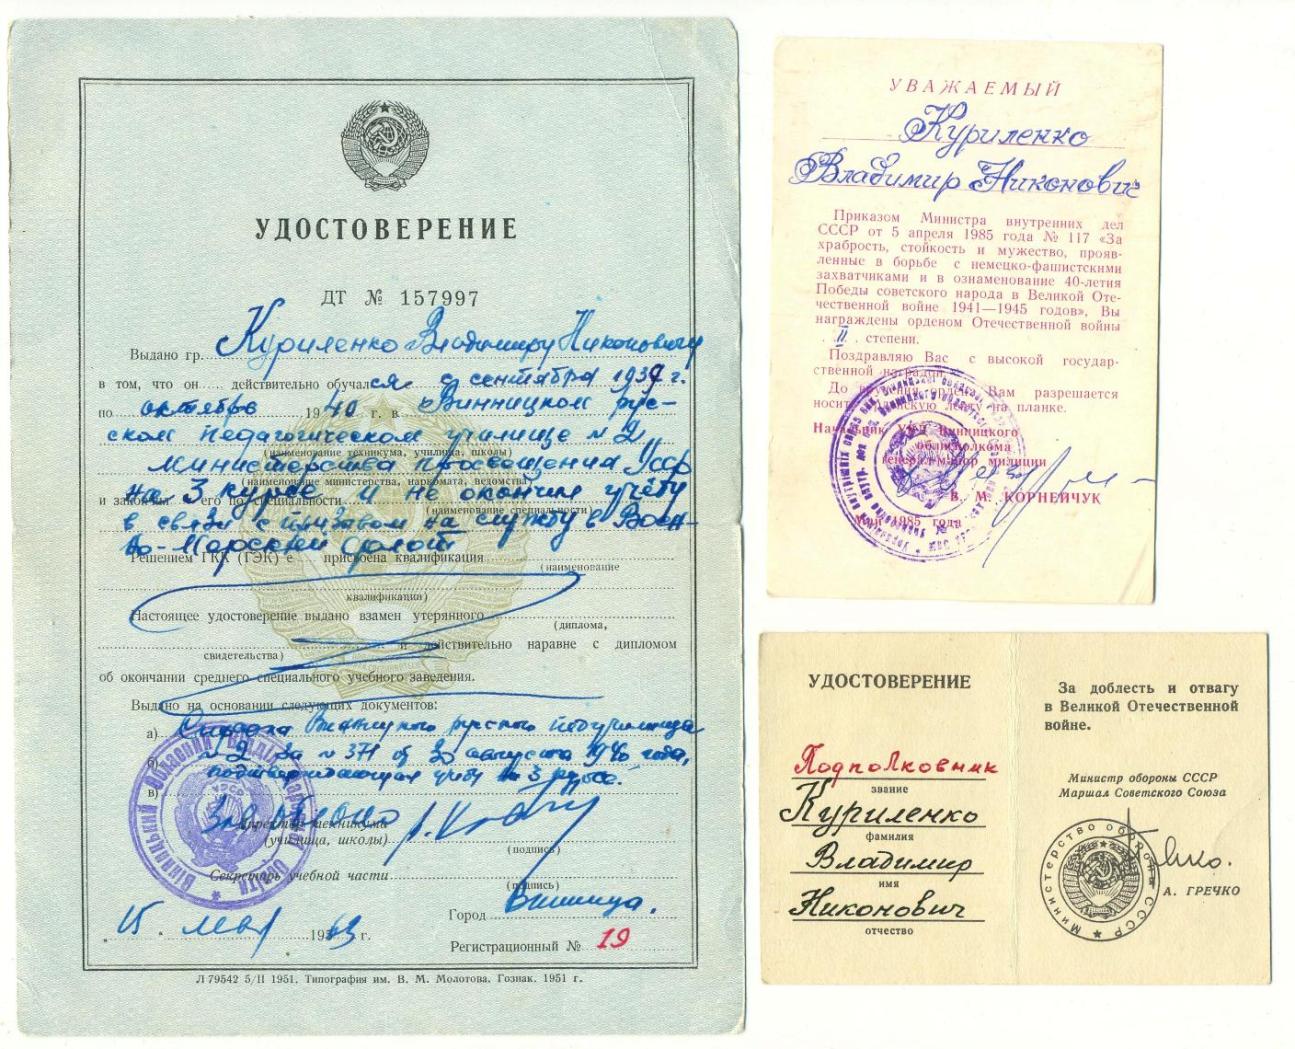 УДОСТОВЕРЕНИЕ
ДТ № 157997
Выдано гр. Куриленко Владимиру Никоновичу
в том, что он действительно обучался с сентября 1937 г.
по октябрь 1940 г. в Винницком рус-
ском педагогическом училище №2,
(наименование техникума, училища, школы)
министерства просвещения УССР
(наименование министерства, наркомата, ведомства)
на 3 курсе и не окончил учёбу
и закончил его по специальности
(наименование специальности)
в связи с призывом на службу в Воен-
но-Морской флот
Решением ГКК (ГЭК) е присвоена квалификация
(наименование
квалификации)
Настоящее удостоверение выдано взамен утерянного
(диплома,
свидетельства)
и действительно наравне с дипломом
об окончании среднего специального учебного заведения.
Выдано на основании следующих документов:
а) Справка Винницкого русского педучилища
б) №2 за №371 от 30 августа 1940 года,
подтверждающая учёбу на 3 курсе.
в)
Директор техникума
(училища, школы)
(подпись)
Секретарь учебной части
(подпись)
Город Винница.
15 мая 19 г.
Регистрационный № 19
Л 79542 5/II 1951. Типография им. В. М. Молотова. Гознак. 1951 г.
УВАЖАЕМЫЙ
Куриленко
Владимир Никонович
Приказом Министра внутренних дел
СССР от 5 апреля 1985 года № 117 «За
храбрость, стойкость и мужество, прояв-
ленные в борьбе с немецко-фашистскими
захватчиками и в ознаменование 40-летия
Победы советского народа в Великой Оте-
чественной войне 1941—1945 годов», Вы
награждены орденом Отечественной войны
II степени.
Поздравляю Вас с высокой государ-
ственной наградой.
До вручения ордена Вам разрешается
носить орденскую ленту на планке.
Начальник УВД Винницкого
облисполкома
генерал-майор милиции
В. М. КОРНЕЙЧУК
Май 1985 года
УДОСТОВЕРЕНИЕ
Подполковник
звание
Куриленко
фамилия
Владимир
имя
Никонович
отчество
За доблесть и отвагу
в Великой Отечественной
войне.
Министр обороны СССР
Маршал Советского Союза
Министерство обороны СССР
А. ГРЕЧКО